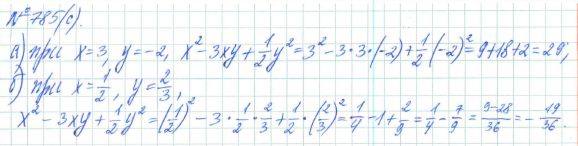 №785(с).
а) при x=3, y=-2, x²-3xy+1/2y²=3²-3·3·(-2)+1/2(-2)²=9+18+2=29;
б) при x=1/2, y=2/3,
x²-3xy+1/2y²=(1/2)²-3·1/2·2/3+1/2·(2/3)²=1/4-1+2/9=1/4-7/9=9-28/36=-19/36.